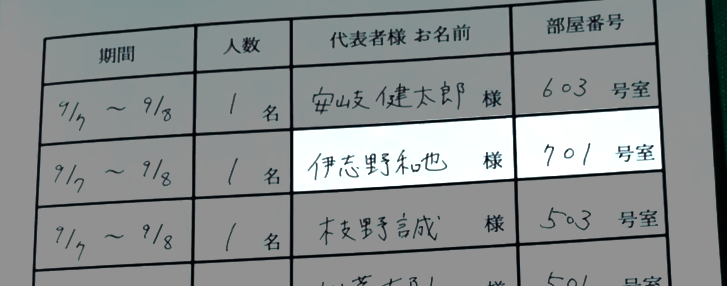 期間 人数 代表者様 お名前 部屋番号
9/7 ～ 9/8 1 名 安岐健太郎 様 603 号室
9/7 ～ 9/8 1 名 伊志野和也 様 701 号室
9/7 ～ 9/8 1 名 枝野誠成 様 503 号室
501 号室